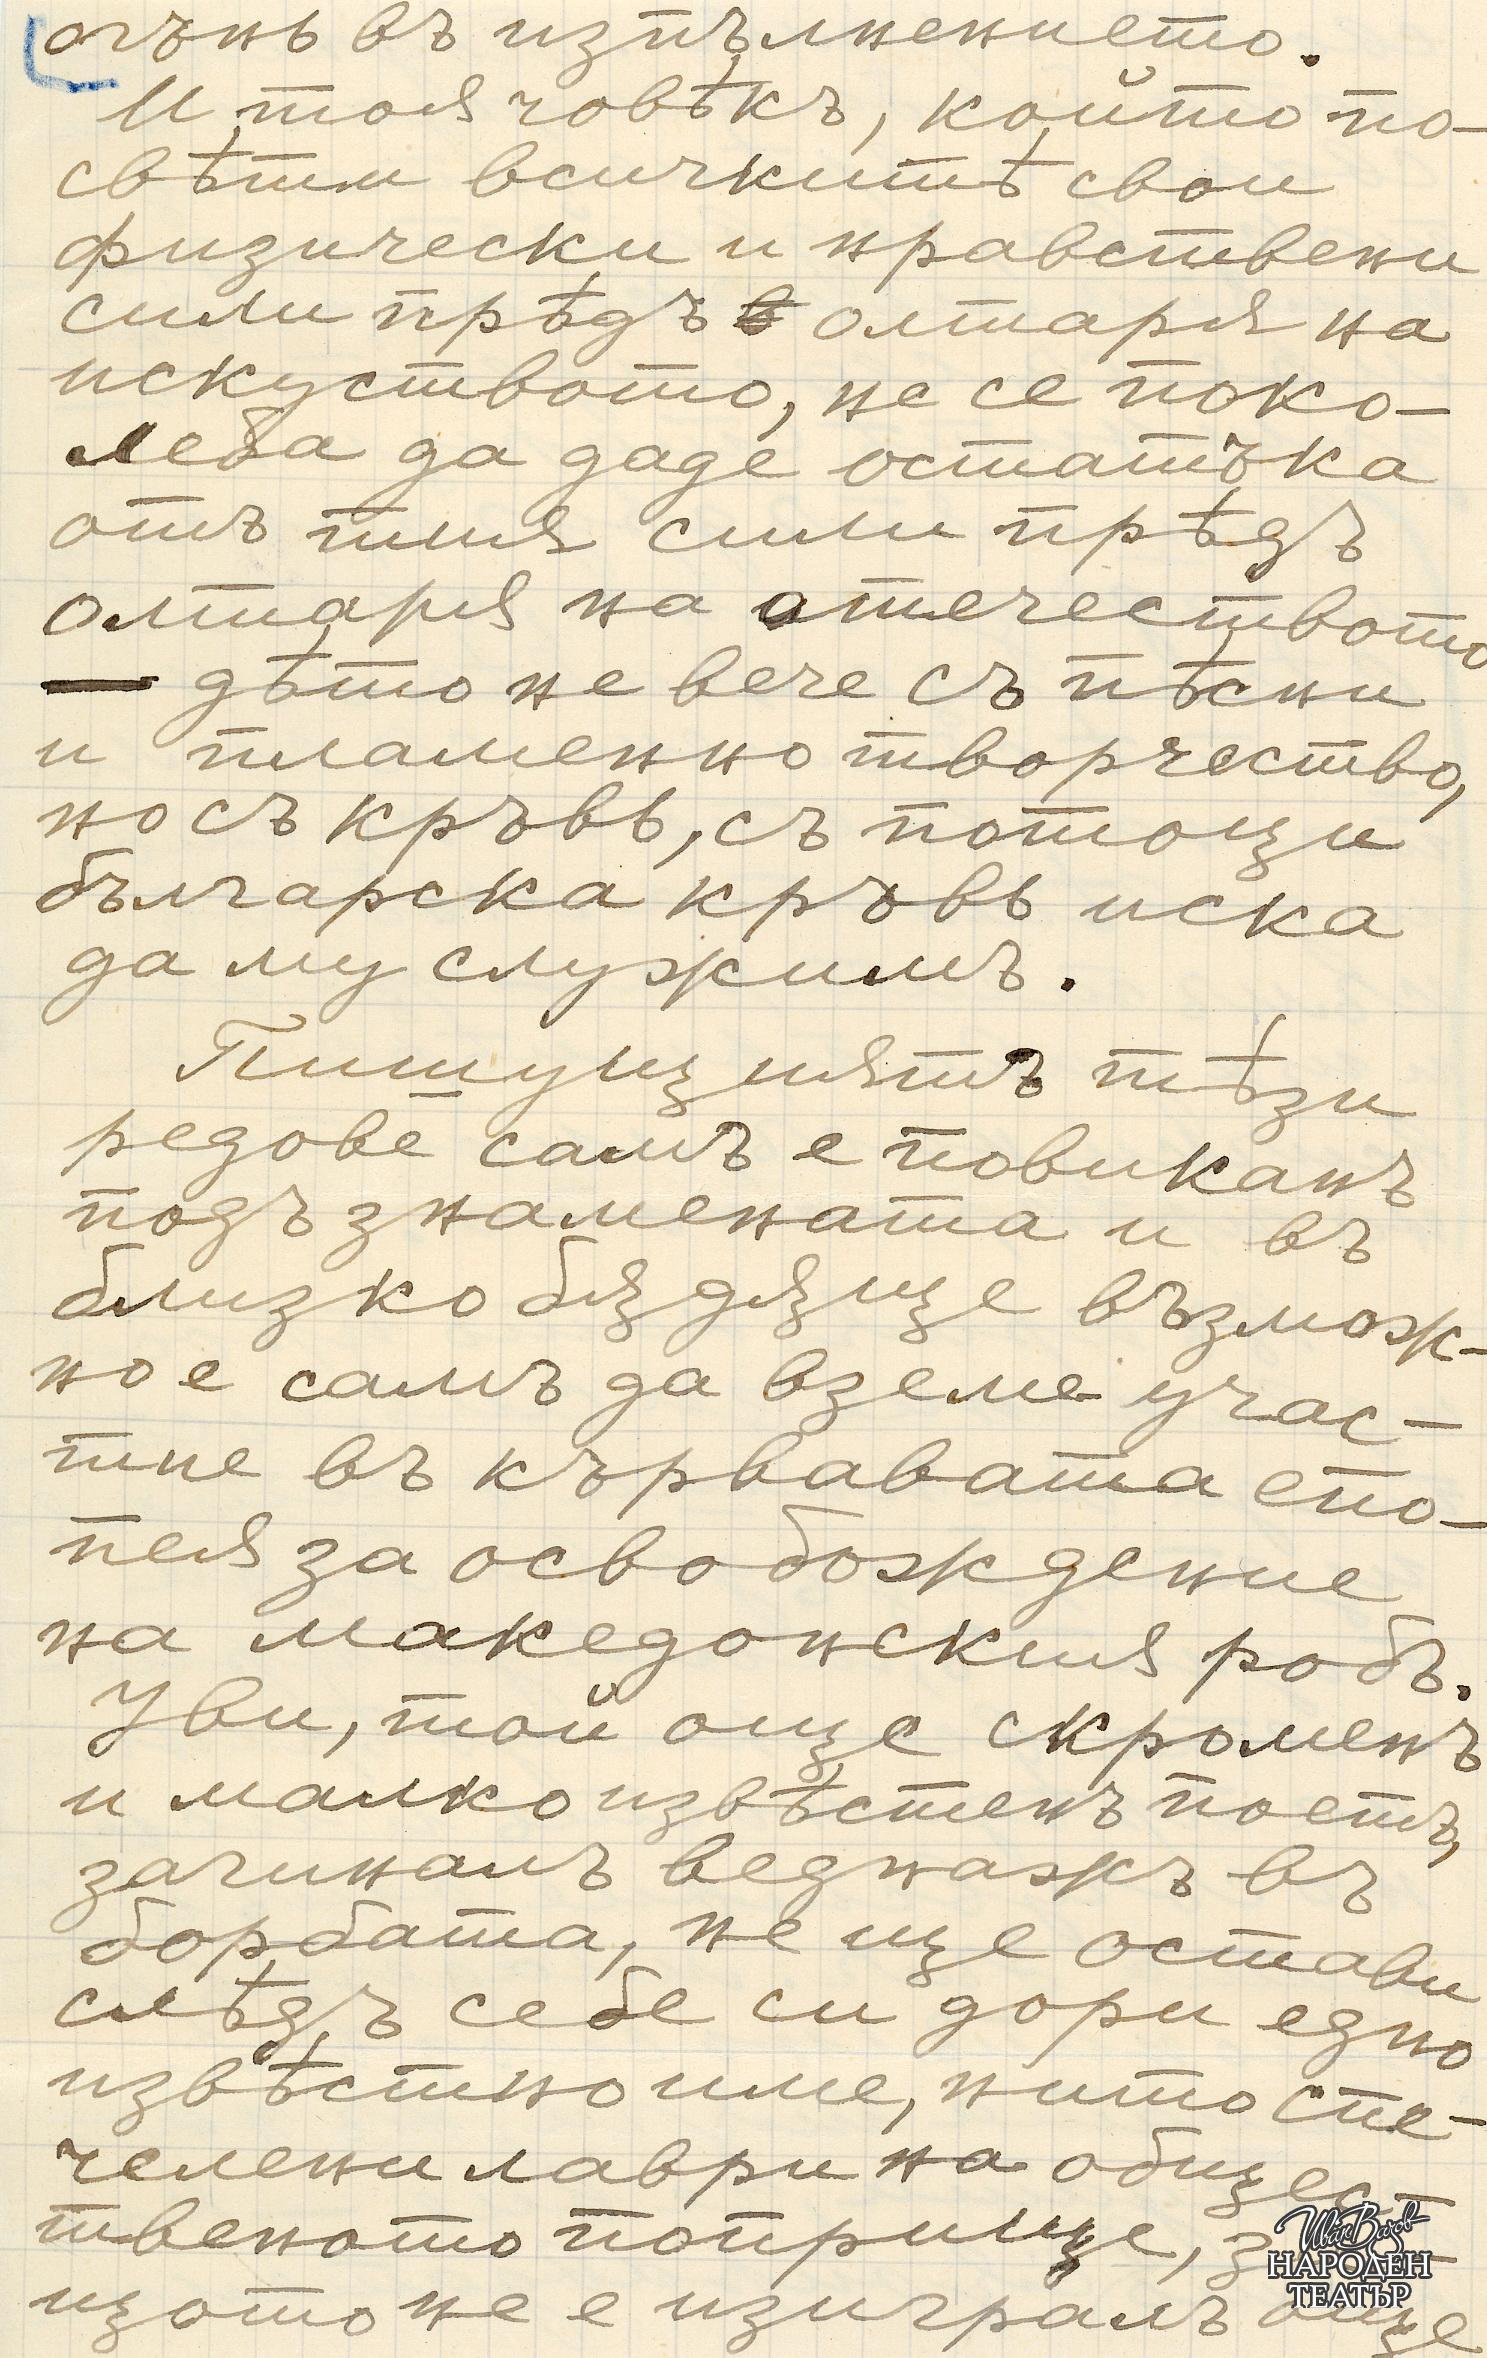 огънь въ изпълнението.
И тоя човѣкъ, който по-
свѣти всичкитѣ свои
физически и нравствени
сили прѣдъ олтаря на
искуството, не се поко-
леба да даде остатъка
отъ тия сили прѣдъ
олтаря на отечеството
— дѣто не вече съ пѣсни
и пламенно творчество,
но съ кръвь, съ потоци
българска кръвь иска
да му служимъ.
Пишущиятъ тѣзи
редове самъ е повиканъ
подъ знамената и въ
близко бѫдѫще възмож-
но е самъ да вземе учас-
тие въ кървавата епо-
пея за освобождение
на македонския робъ.
Уви, той още скроменъ
и малко извѣстенъ поетъ,
загиналъ веднажъ въ
борбата, не ще остави
слѣдъ себе си дори едно
извѣстно име, нито спе-
челени лаври на общес-
твеното поприще,
щото не е изигралъ още
Иван Вазов
НАРОДЕН
ТЕАТЪР